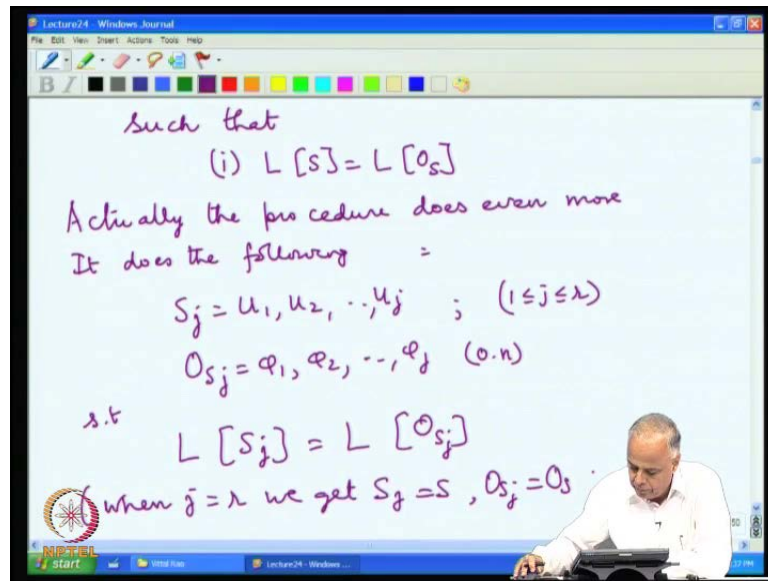 Lecture24 - Windows Journal
File Edit View Insert Actions Tools Help
B I
such that
(i) L [S] = L [O_S]
Actually the procedure does even more
It does the following =
S_j = u_1, u_2, .., u_j ; (1 ≤ j ≤ r)
O_{S_j} = φ_1, φ_2, .., φ_j (o.n)
s.t
L [S_j] = L [O_{S_j}]
(when j = r we get S_j = S , O_{S_j} = O_S
NPTEL
start Vittal Rao Lecture24 - Windows ...